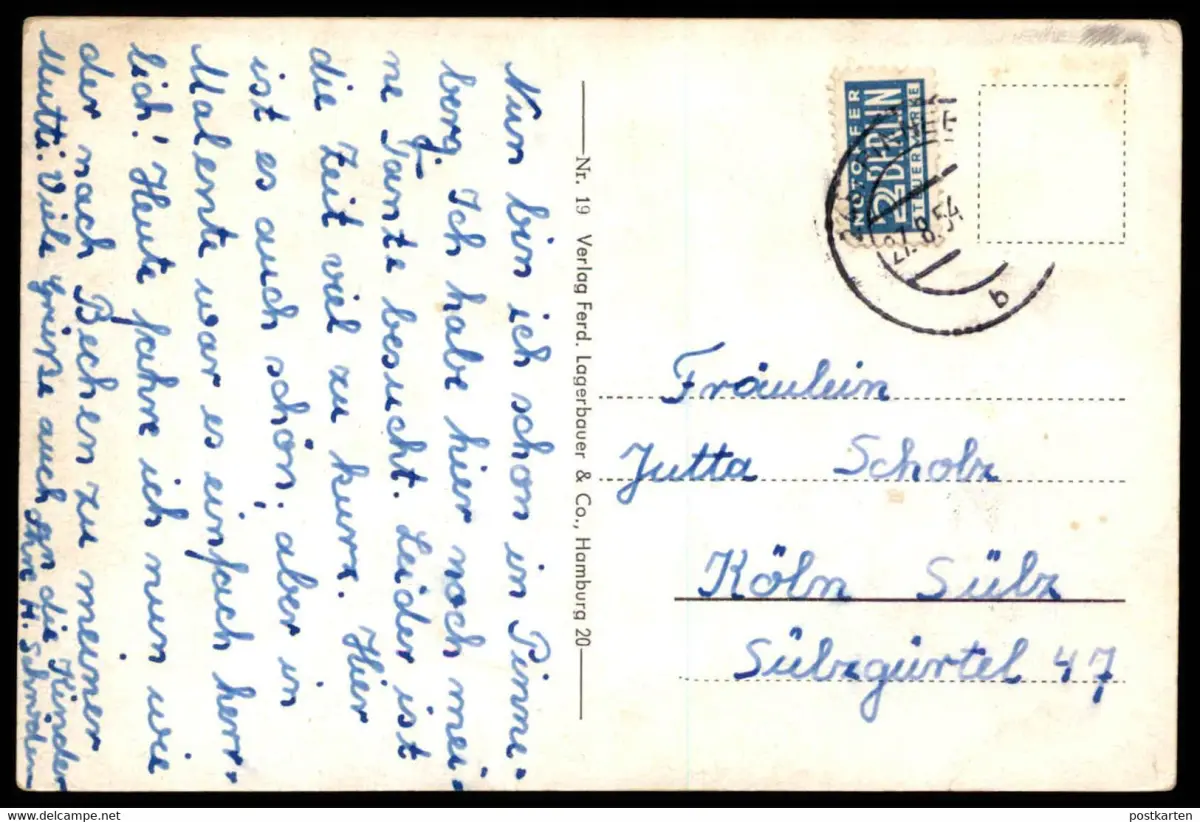 Nun bin ich schon in Pinne-
berg. Ich habe hier noch mei-
ne Tante besucht. Leider ist
die Zeit viel zu kurz. Hier
ist es auch schön, aber in
Malente war es einfach herr-
lich! Heute fahre ich nun wie
der nach Bechen zu meiner
Mutti. Viele Grüße auch an die Kinder
Ihre H.
Nr. 19 Verlag Ferd. Lagerbauer & Co., Hamburg 20
NOTOPFER
2 BERLIN
STEUERMARKE
21.8.54
b
Fräulein
Jutta Scholz
Köln Sülz
Sülzgürtel 47
postkarten